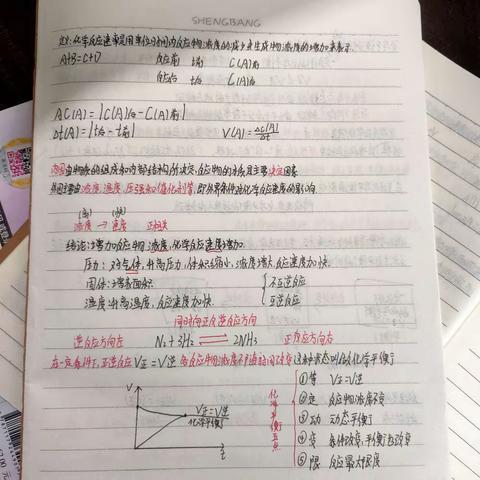 SHENGBANG
定义:化学反应速率是用单位时间内反应物浓度的减少或生成物浓度的增加来表示.
A+B=C+D 反应前 t前 C(A)前
反应后 t后 C(A)后
ΔC(A)=|C(A)后-C(A)前|
Δt(A)=|t后-t前| V(A)=ΔC(A)/Δt
内因:由物质的组成和内部结构所决定,反应物的本质是主要决定因素
外因主要由浓度,温度,压强和催化剂等,即外界条件对化学反应速率的影响
(高) (快)
浓度 → 速度 正相关
结论:增加反应物浓度,化学反应速度增加.
压力:对气体,升高压力,体积缩小,浓度增大,反应速度加快.
固体:增表面积 不可逆反应
温度:升高温度,反应速度加快. 可逆反应
同时向正反逆反应方向
逆反应方向左 N₂+3H₂ ⇌ 2NH₃ 正反应方向右
在一定条件下,正逆反应V正=V逆 各反应物浓度不再随时间改变这种状态叫做化学平衡
V
V正=V逆
化学平衡
t
化学平衡特点
①等 V正=V逆
②定 反应物浓度不变
③动 动态平衡
④变 条件改变,平衡也改变
⑤限 反应最大限度